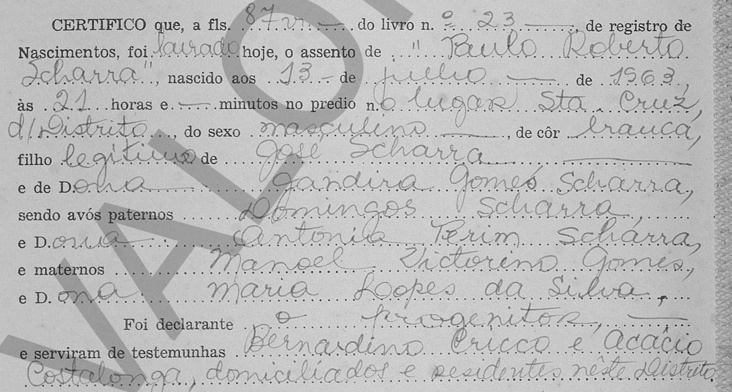 CERTIFICO que, a fls. 87 vº do livro n.º 23 de registro de
Nascimentos, foi lavrado hoje, o assento de "Paulo Roberto
Scharra", nascido aos 13 de julho de 1963,
às 21 horas e minutos no predio n. o lugar Sta. Cruz,
d/Distrito, do sexo masculino, de côr branca,
filho legitimo de José Scharra
e de D.ona Jandira Gomes Scharra,
sendo avós paternos Domingos Scharra
e D.ona Antonia Perim Scharra,
e maternos Manoel Victorino Gomes,
e D.ona Maria Loopes da Silva.
Foi declarante o progenitor,
e serviram de testemunhas Bernardino Pricco e Acácio
Costalonga, domiciliados e residentes nêste Distrito
VALOR